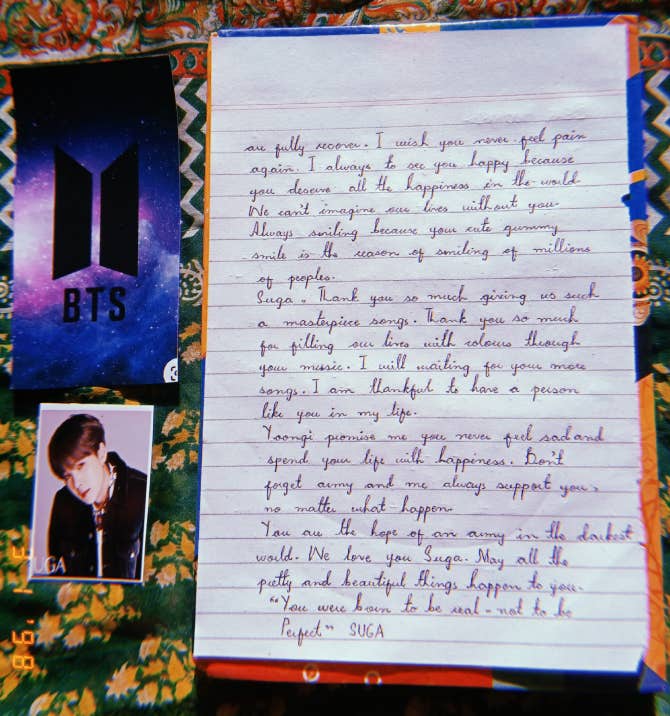 BTS
SUGA
are fully recover. I wish you never feel pain
again. I always to see you happy because
you deserve all the happiness in the world
We can't imagine our lives without you.
Always smiling because your cute gummy
smile is the reason of smiling of millions
of peoples.
Suga. Thank you so much giving us such
a masterpiece songs. Thank you so much
for filling our lives with colours through
your music. I will waiting for your more
songs. I am thankful to have a person
like you in my life.
Yoongi promise me you never feel sad and
spend your life with happiness. Don't
forget army and me always support you,
no matter what happen.
You are the hope of an army in the darkest
world. We love you Suga. May all the
pretty and beautiful things happen to you.
"You were born to be real - not to be
Perfect" SUGA